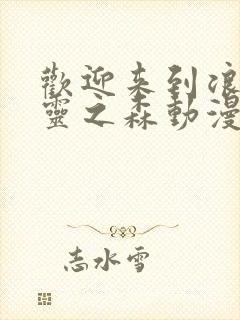 歡迎来到浪
靈之森動漫
志水雪